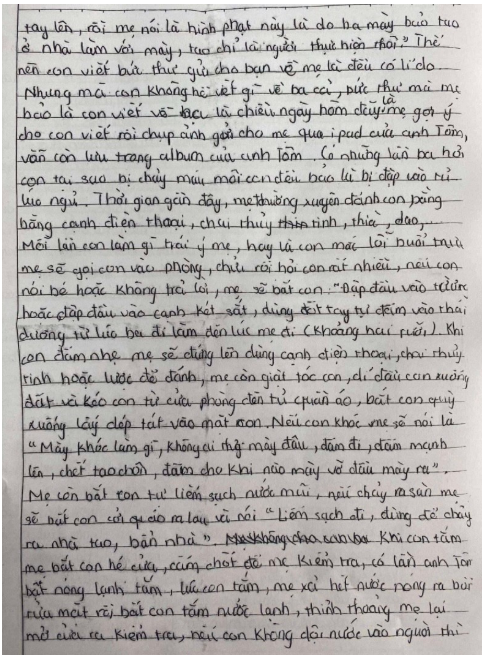 tay lên, rồi mẹ nói là hình phạt này là do ba mày bảo tao
ở nhà làm với mày, tao chỉ là người thực hiện thôi." Thế
nên con viết bức thư gửi cho bạn về mẹ là đều có lí do
Nhưng mà con không hề viết gì về ba cả, bức thư mà mẹ
bảo là con viết về ba là chiều ngày hôm đấy là mẹ gợi ý
cho con viết rồi chụp ảnh gởi cho mẹ qua ipad của anh Tôm,
vẫn còn lưu trong album của anh Tôm. Có những lần ba hỏi
con tại sao bị chảy máu môi con đều bảo là bị đập vào tủ
lúc ngủ. Thời gian gần đây, mẹ thường xuyên đánh con bằng
bằng cạnh điện thoại, chai thủy tinh, thìa, dao,
Mỗi lần con làm gì trái ý mẹ, hay là con mắc lỗi buổi trưa
mẹ sẽ gọi con vào phòng, chửi rồi hỏi con rất nhiều, nếu con
nói bé hoặc không trả lời, mẹ sẽ bắt con: "Đập đầu vào tường
hoặc đập đầu vào cạnh két sắt, dùng đốt tay tự đấm vào thái
dương từ lúc ba đi làm đến lúc mẹ đi (khoảng hai rưỡi). Khi
con đấm nhẹ mẹ sẽ đứng lên dùng cạnh điện thoại, chai thủy
tinh hoặc lược để đánh, mẹ còn giật tóc con, dí đầu con xuống
đất và kéo con từ cửa phòng đến tủ quần áo, bắt con quỳ
xuống lấy dép tát vào mặt con. Nếu con khóc mẹ sẽ nói là
"Mày khóc làm gì, không ai thờ mày đâu, đấm đi, đấm mạnh
lên, chết tao chôn, đấm cho khi nào mày vỡ đầu mày ra".
Mẹ còn bắt con tự liếm sạch nước mũi, nếu chảy ra sàn mẹ
sẽ bắt con cởi quần áo ra lau và nói "Liếm sạch đi, đừng để chảy
ra nhà tao, bẩn nhà" Khi con tắm
mẹ bắt con hé cửa, cấm chốt để mẹ kiểm tra, có lần anh Tôm
bật nóng lạnh tắm, lúc con tắm, mẹ xả hết nước nóng ra bồn
rửa mặt rồi bắt con tắm nước lạnh, thỉnh thoảng mẹ lại
mở cửa ra kiểm tra, nếu con không dội nước vào người thì